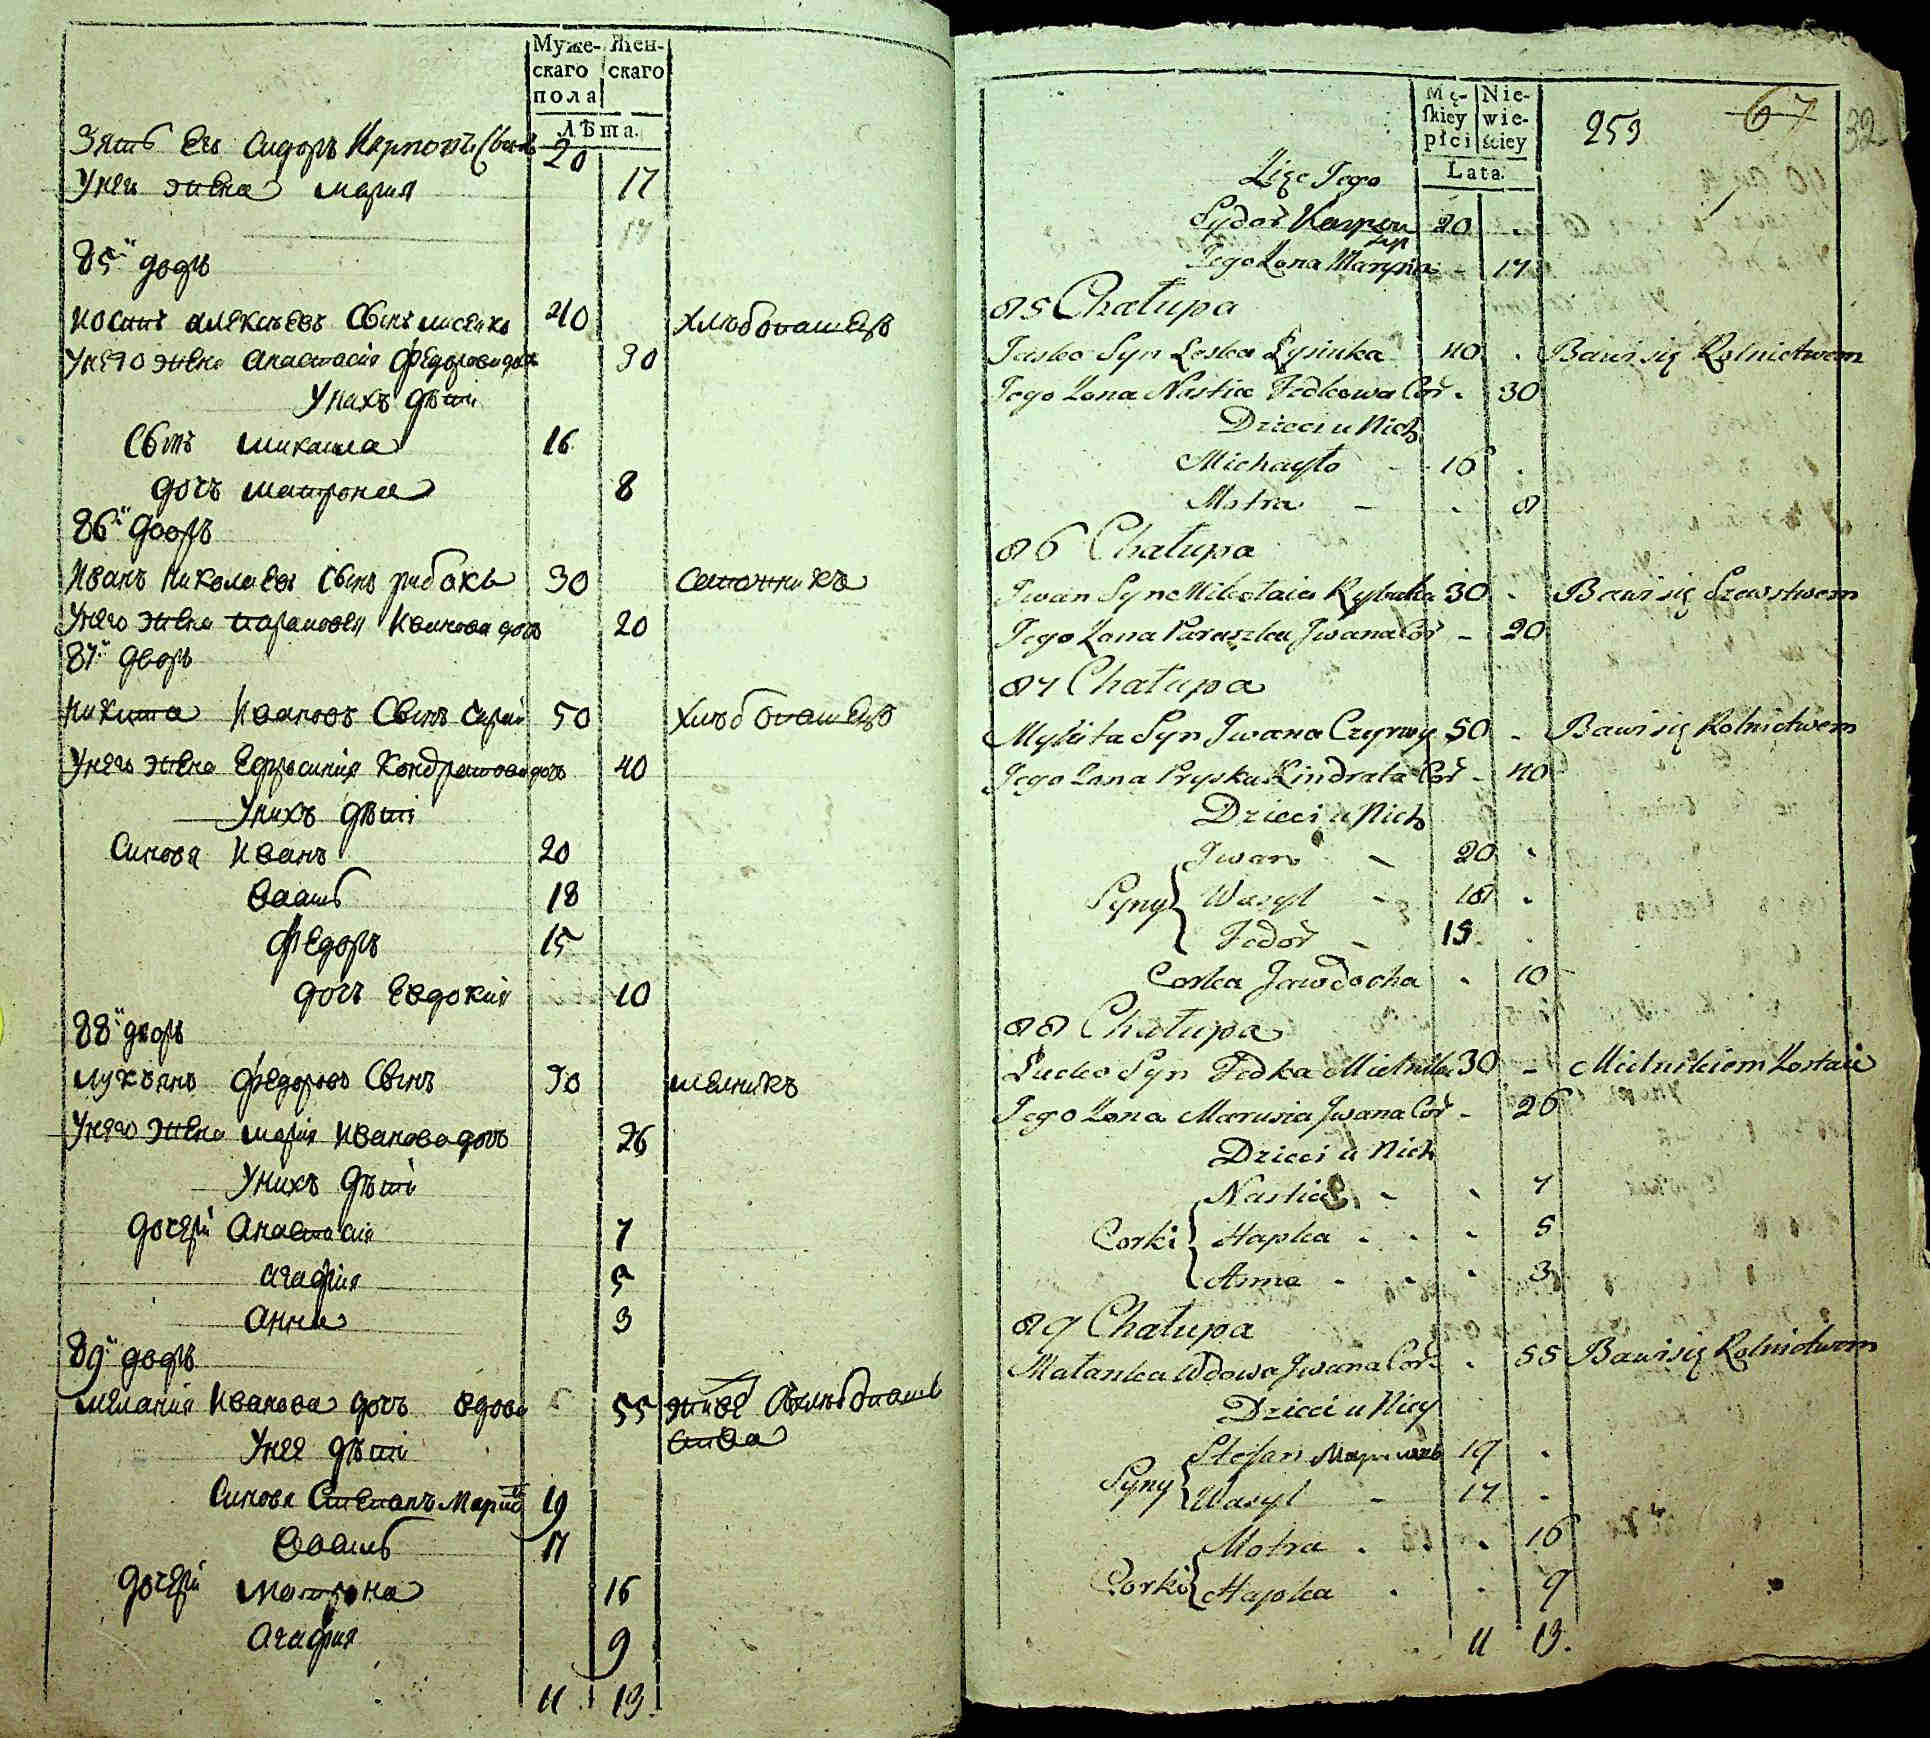 Муже- Жен-
скаго скаго
пола
Лѣта.
Зять Его Сидоръ Карповъ Сынъ 20
Унего жена Мария 17
17
85й дворъ
Иосипъ Алексѣевъ Сынъ Лисенко 40 Хлѣбопашецъ
Унего жена Анастасия Федорова дочь 30
Унихъ дѣти
Сынъ Михаила 16
дочь Матрона 8
86й дворъ
Иванъ Николаевъ Сынъ рибакъ 30 Сапожникъ
Унего жена Парасковея Иванова дочь 20
87й дворъ
Никита Ивановъ Сынъ 50 Хлѣбопашецъ
Унего жена Ефросиния Кондратова дочь 40
Унихъ дѣти
Синовя Иванъ 20
Василь 18
Федоръ 15
дочь Евдокия 10
88й дворъ
Лукъянъ Федоровъ Сынъ 30 мелникъ
Унего жена Мария Иванова дочь 26
Унихъ дѣти
дочери Анастасия 7
Агафия 5
Анна 3
89й дворъ
Мелания Иванова дочь вдова 55 живе Схлѣбопаш
ства
Унее дѣти
Синовя Степанъ 19
Василь 17
дочери Матрона 16
Агафия 9
11 13
Mę- Nie-
skiey wie-
płci ściey
Lata.
253 67 32
Zięć Jego
Sydor Karpow 20
syn
Jego Żona Marysia - 17
85 Chałupa
Jaśko Syn Leska Łysinka 40 . Bawi się Rolnictwem
Jego Żona Nastia Fedkowa Cór . 30
Dzieci u Nich
Michayło - 16 .
Motra - . 8
86 Chałupa
Iwan Syn Mikołaia Rybaka 30 - Bawi się Szewstwem
Jego Żona Paraszka Iwana Cór - 20
87 Chałupa
Mykita Syn Iwana Czyrwy 50 - Bawi się Rolnictwem
Jego Żona Pryska Kindrata Cór - 40
Dzieci u Nich
Iwan - 20 .
Syny Wasyl - 18 .
Fedor - 15 .
Corka Jawdocha . 10
88 Chałupa
Lucko Syn Fedka Mielnika 30 - Mielnikiem Zostaie
Jego Żona Marusia Iwana Cór - 26
Dzieci u Nich
Nastia - . 7
Corki Hapka . . . 5
Anna . . . 3
89 Chałupa
Małanka Wdowa Iwana Cór . 55 Bawi się Rolnictwem
Dzieci u Niey
Stefan 19 .
Syny Wasyl - 17 .
Motra . . 16
Corki Hapka . . 9
11 13.